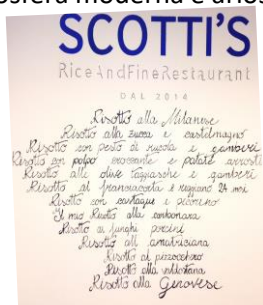 SCOTTI'S
RiceAndFineRestaurant
DAL 2014
Risotto alla Milanese
Risotto alla zucca e castelmagno
Risotto con pesto di rucola e gamberi
Risotto con polpo croccante e patate arrosti
Risotto alle olive taggiasche e gamberi
Risotto al franciacorta e reggiano 24 mesi
Risotto con castagne e pecorino
Il mio Risotto alla carbonara
Risotto ai funghi porcini
Risotto all'amatriciana
Risotto al pizzocchero
Risotto alla valdostana
Risotto alla Genovese